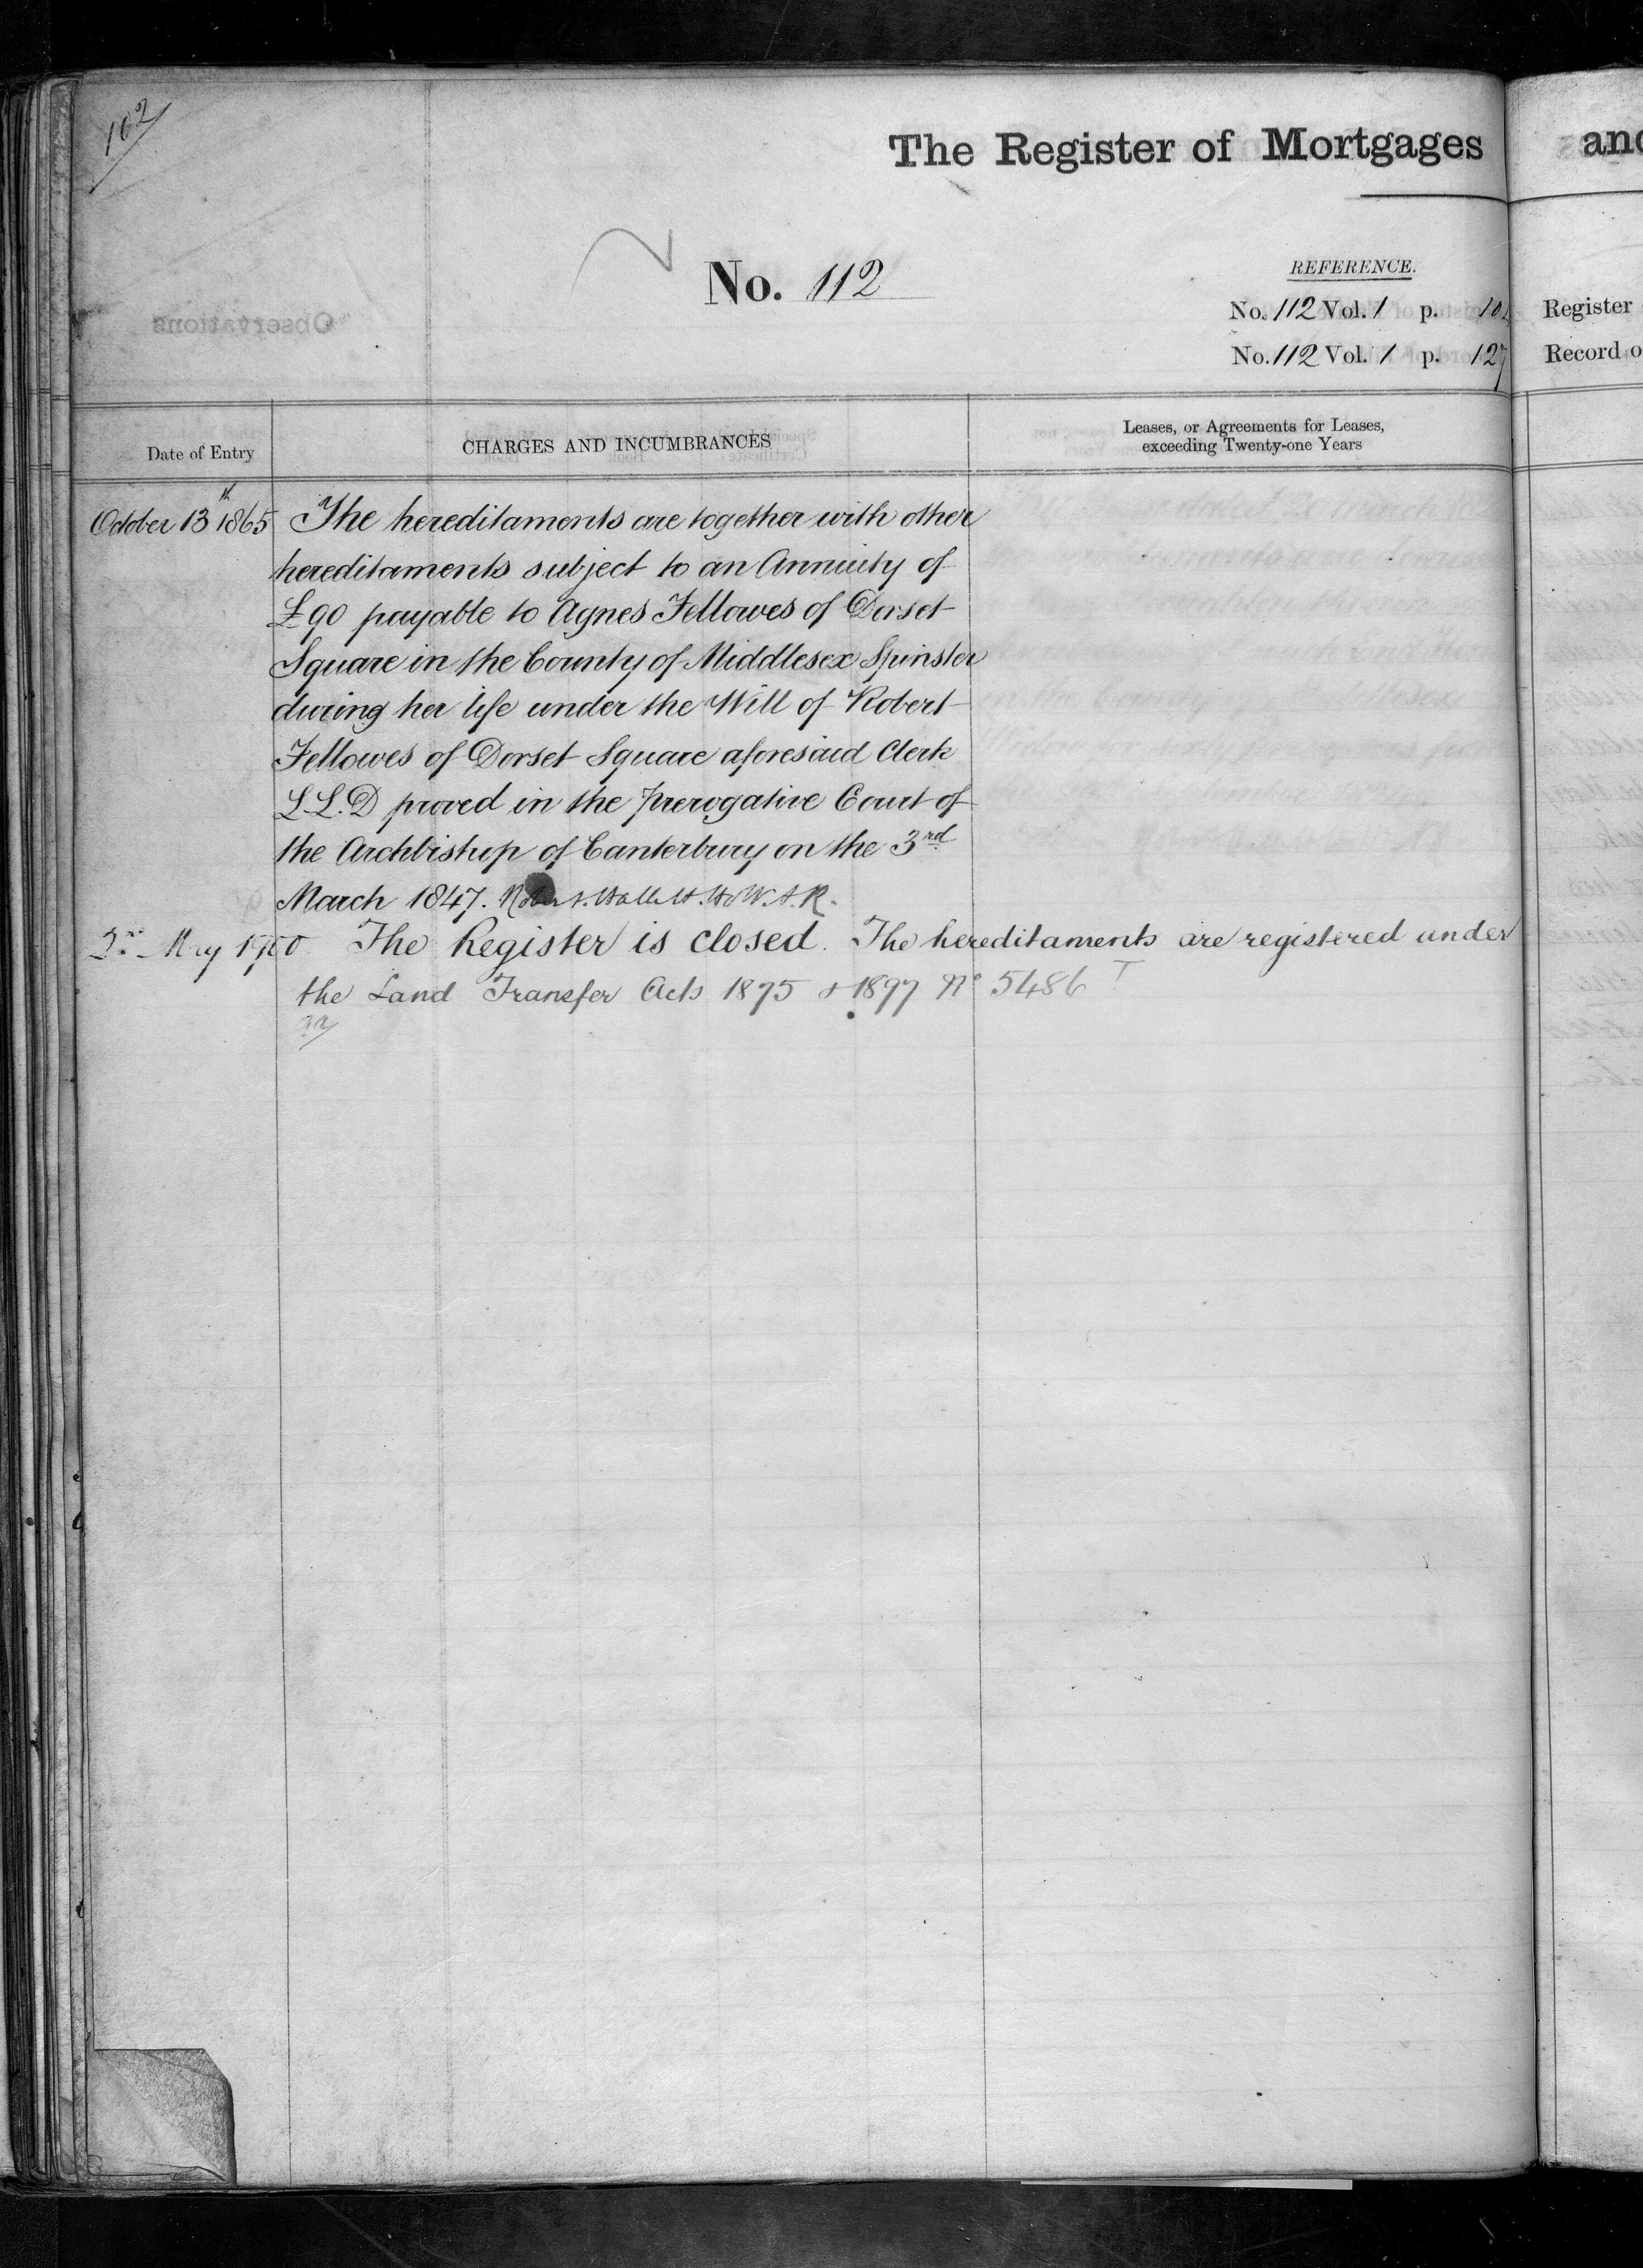 102
The Register of Mortgages
and
No. 112
REFERENCE.
No. 112 Vol. 1 p.
Register
No. 112 Vol. 1 p. 127
Record o
Date of Entry
CHARGES AND INCUMBRANCES
Leases, or Agreements for Leases,
exceeding Twenty-one Years
October 13th 1865 The hereditaments are together with other
hereditaments subject to an Annuity of
£90 payable to Agnes Fellowes of Dorset
Square in the County of Middlesex Spinster
during her life under the Will of Robert
Fellowes of Dorset Square aforesaid Clerk
L.L.D proved in the Prerogative Court of
the Archbishop of Canterbury on the 3rd
March 1847.
May 1900 The Register is closed. The hereditaments are registered under
the Land Transfer Acts 1875 & 1897 No 5486